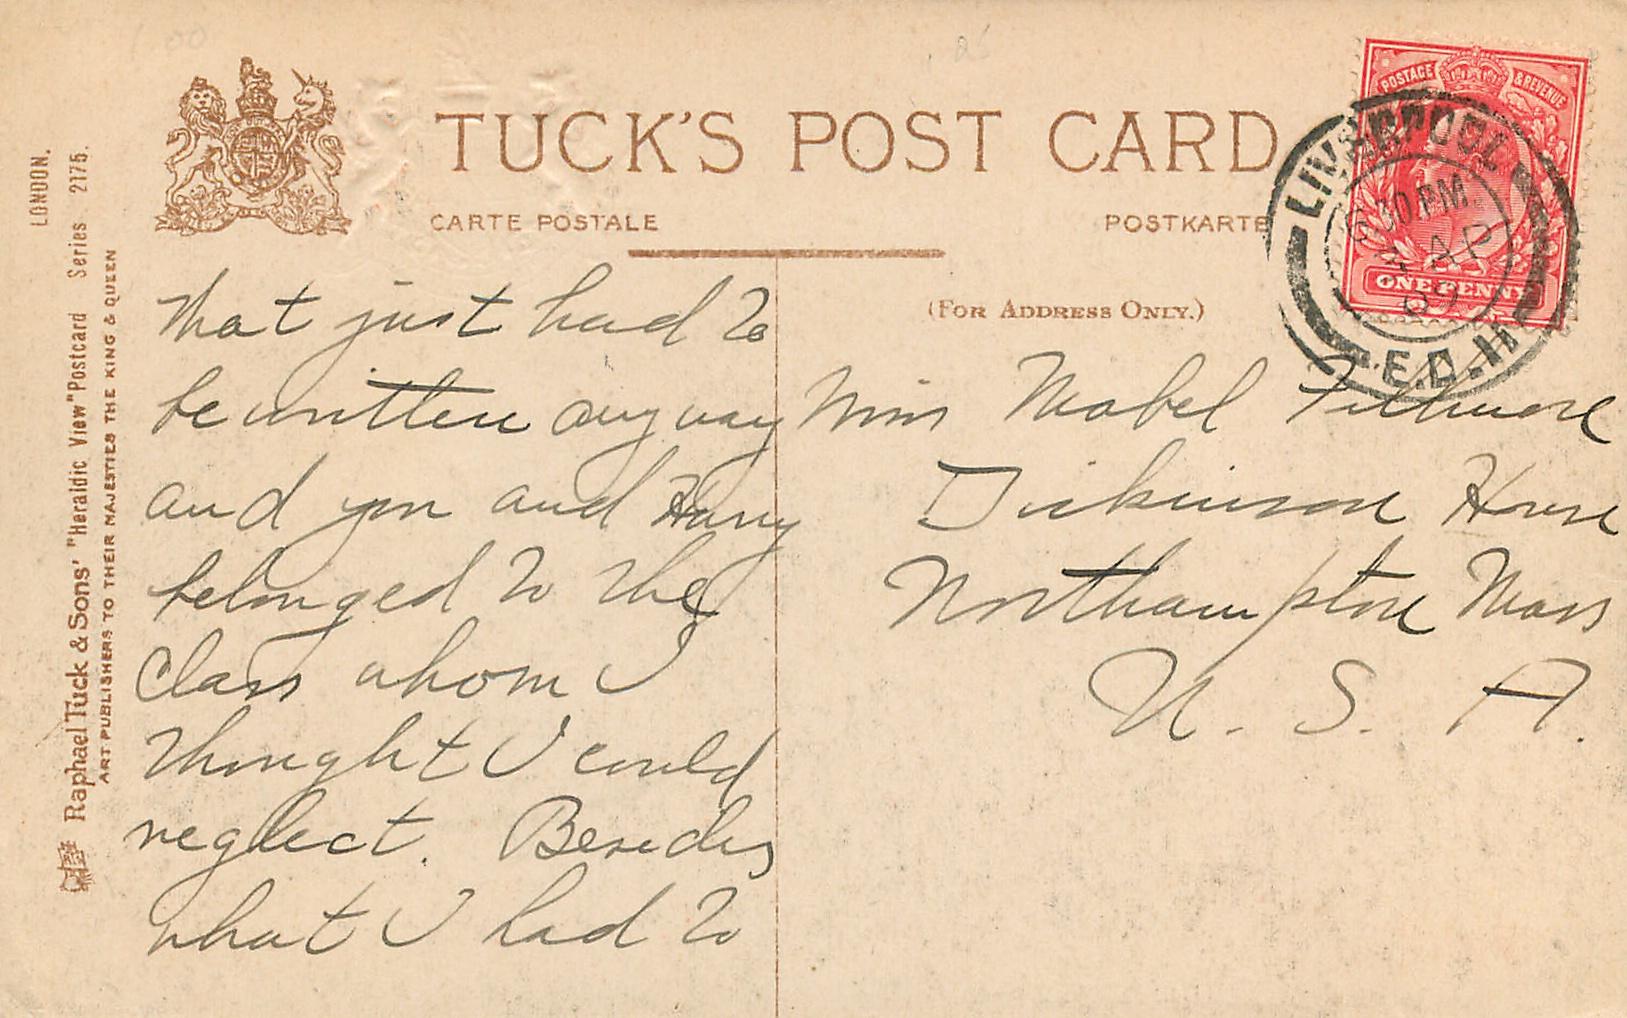 TUCK'S POST CARD
CARTE POSTALE
POSTKARTE
(FOR ADDRESS ONLY.)
LONDON.
Raphael Tuck & Sons' "Heraldic View" Postcard Series 2175.
ART PUBLISHERS TO THEIR MAJESTIES THE KING & QUEEN
POSTAGE & REVENUE
ONE PENNY
LIVERPOOL
30 PM
AP
09
that just had to
be written anyway
and you and Harry
belonged to the
class whom I
thought I could
neglect. Besides
what I had to
Miss Mabel Fillmore
Dickinson House
Northampton Mass
U. S. A.